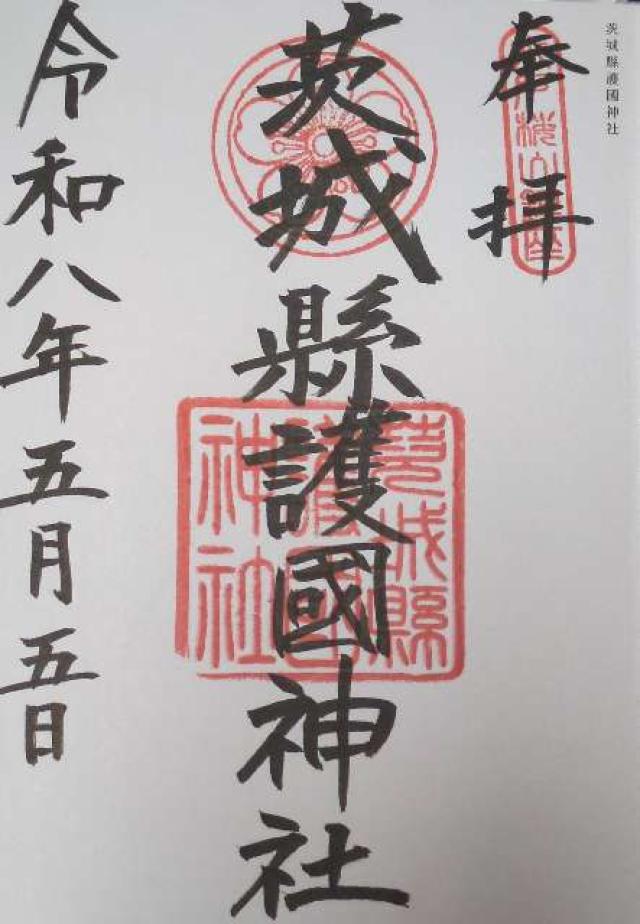 茨城縣護國神社
奉拝
茨城縣護國神社
令和八年五月五日
茨城縣
護國
神社